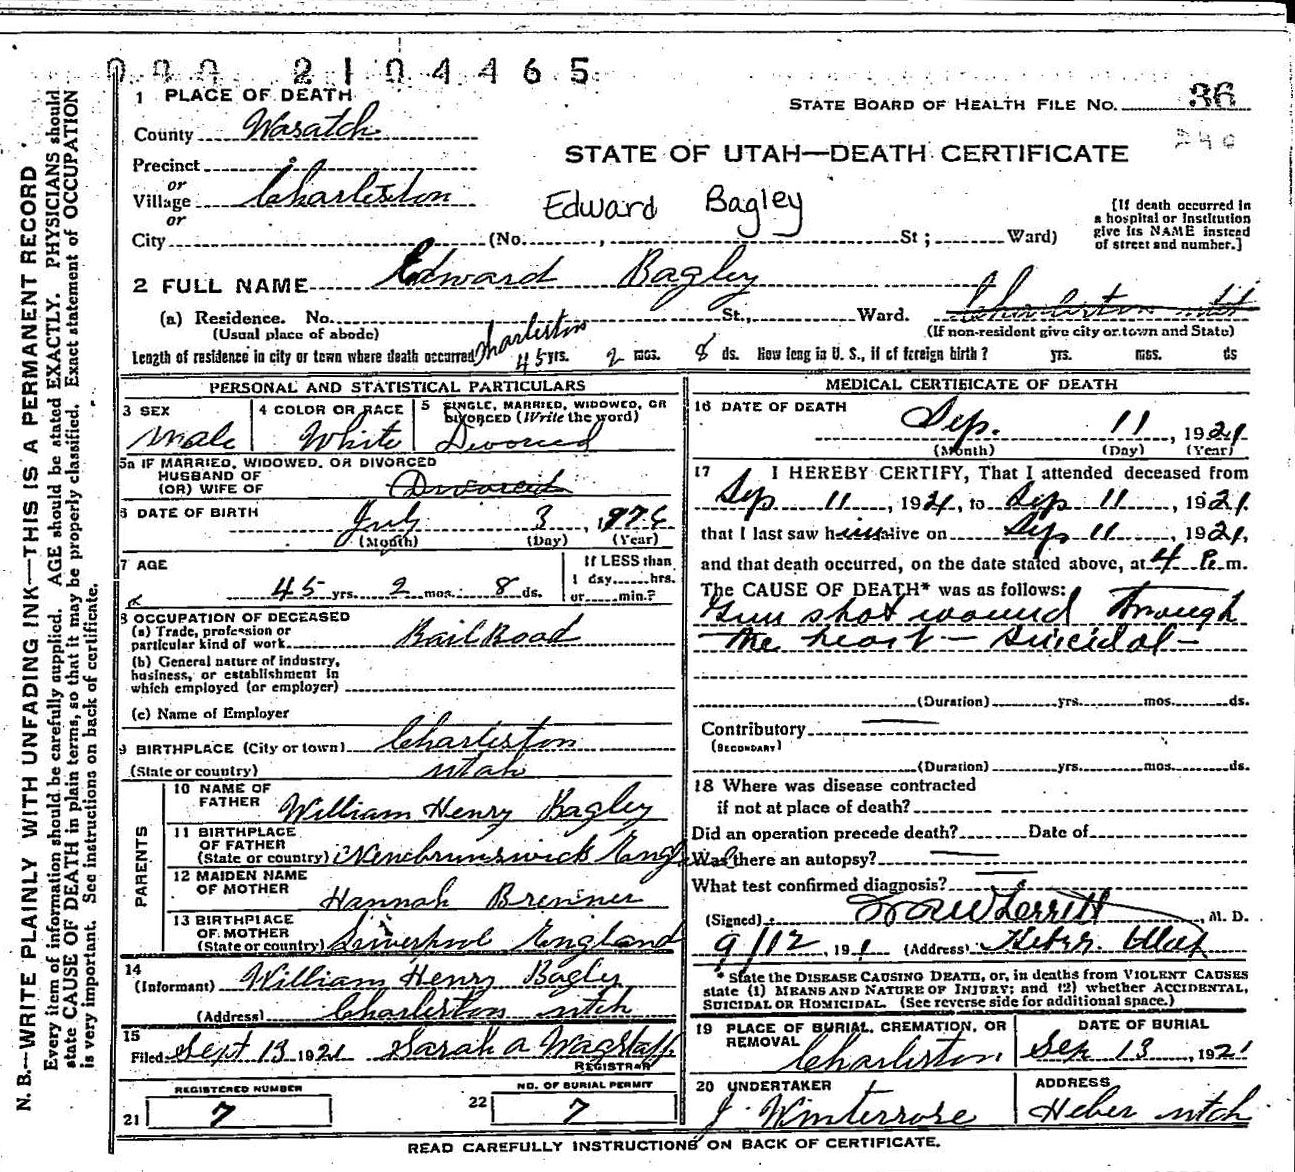 000 2104465
1 PLACE OF DEATH
STATE BOARD OF HEALTH FILE NO. 36
County Wasatch
240
STATE OF UTAH—DEATH CERTIFICATE
Precinct
or
Village Charleston
or
Edward Bagley
[If death occurred in
a hospital or institution
give its NAME instead
of street and number.]
City (No. , St ; Ward)
2 FULL NAME Edward Bagley
(a) Residence. No. St., Ward. Charleston
(Usual place of abode) (If non-resident give city or town and State)
Length of residence in city or town where death occurred Charleston 45 yrs. 2 mos. 8 ds. How long in U. S., if of foreign birth? yrs. mos. ds
PERSONAL AND STATISTICAL PARTICULARS
3 SEX
Male
4 COLOR OR RACE
White
5 SINGLE, MARRIED, WIDOWED, OR
DIVORCED (Write the word)
Divorced
5a IF MARRIED, WIDOWED, OR DIVORCED
HUSBAND OF
(OR) WIFE OF Divorced
6 DATE OF BIRTH
July 3
(Month) (Day) (Year)
7 AGE
45 yrs. 2 mos. 8 ds.
If LESS than
1 day......hrs.
or......min.?
8 OCCUPATION OF DECEASED
(a) Trade, profession or
particular kind of work Rail Road
(b) General nature of industry,
business, or establishment in
which employed (or employer)
(c) Name of Employer
9 BIRTHPLACE (City or town) Charleston
(State or country) utah
PARENTS
10 NAME OF
FATHER William Henry Bagley
11 BIRTHPLACE
OF FATHER
(State or country) Newbrunswick England
12 MAIDEN NAME
OF MOTHER Hannah
13 BIRTHPLACE
OF MOTHER
(State or country) Liverpool England
14
(Informant) William Henry Bagley
(Address) Charleston utah
15
Filed Sept 13 1921 Sarah A Wagstaff
REGISTRAR
REGISTERED NUMBER
21 7
NO. OF BURIAL PERMIT
22 7
MEDICAL CERTIFICATE OF DEATH
16 DATE OF DEATH
Sep. 11, 1921
(Month) (Day) (Year)
17 I HEREBY CERTIFY, That I attended deceased from
Sep 11, 1921, to Sep 11, 1921
that I last saw him alive on Sep 11, 1921,
and that death occurred, on the date stated above, at 4 P. m.
The CAUSE OF DEATH* was as follows:
Gun shot wound through
the heart — suicidal —
(Duration) yrs. mos. ds.
Contributory
(SECONDARY)
(Duration) yrs. mos. ds.
18 Where was disease contracted
if not at place of death?
Did an operation precede death? Date of
Was there an autopsy?
What test confirmed diagnosis?
(Signed) , M. D.
9/12, 191 (Address) Heber Utah
* State the DISEASE CAUSING DEATH, or, in deaths from VIOLENT CAUSES
state (1) MEANS AND NATURE OF INJURY; and (2) whether ACCIDENTAL,
SUICIDAL OR HOMICIDAL. (See reverse side for additional space.)
19 PLACE OF BURIAL, CREMATION, OR
REMOVAL
Charleston
DATE OF BURIAL
Sep 13, 1921
20 UNDERTAKER
J Winterrose
ADDRESS
Heber utah
READ CAREFULLY INSTRUCTIONS ON BACK OF CERTIFICATE.
N. B.—WRITE PLAINLY WITH UNFADING INK—THIS IS A PERMANENT RECORD
Every item of information should be carefully supplied. AGE should be stated EXACTLY. PHYSICIANS should
state CAUSE OF DEATH in plain terms, so that it may be properly classified. Exact statement of OCCUPATION
is very important. See instructions on back of certificate.